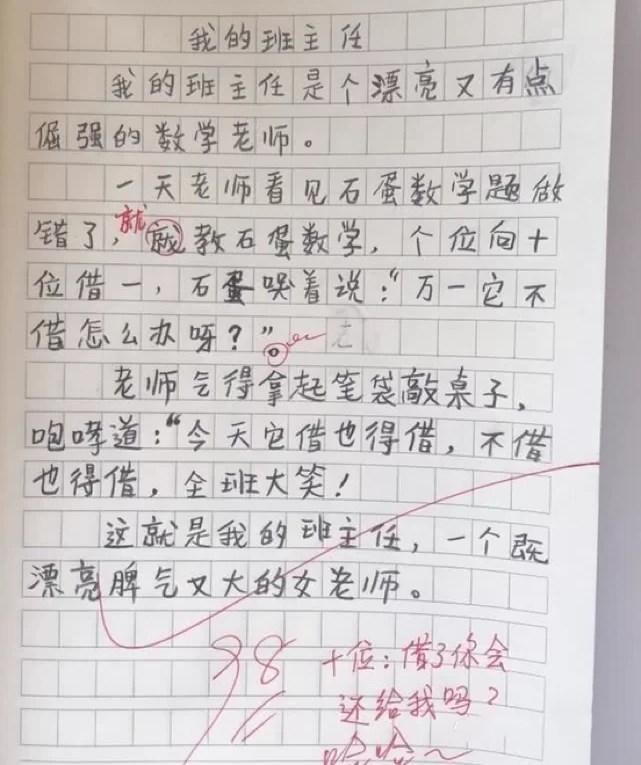 我的班主任
我的班主任是个漂亮又有点
倔强的数学老师。
一天老师看见石蛋数学题做
错了,就教石蛋数学,个位向十
就
位借一,石蛋哭着说:“万一它不
借怎么办呀?”。
老师气得拿起笔袋敲桌子,
咆哮道:“今天它借也得借,不借
也得借,全班大笑!
这就是我的班主任,一个既
漂亮脾气又大的女老师。
98
十位:借了你会
还给我吗?
哈哈~